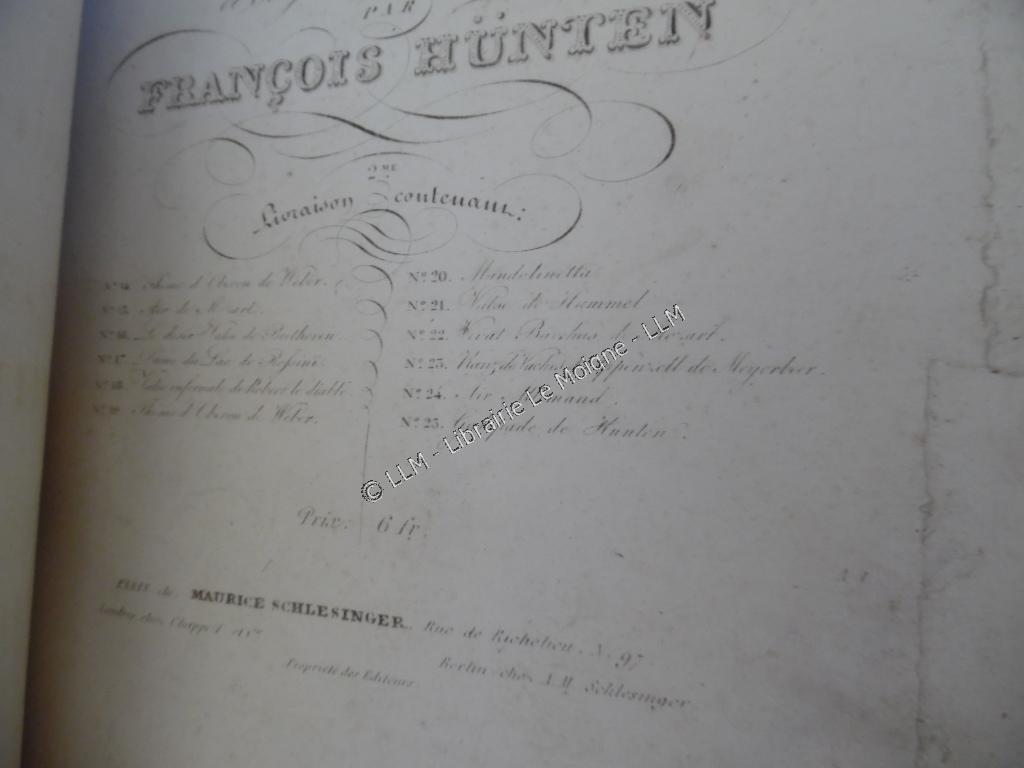 PAR
FRANÇOIS HÜNTEN
2ME
Livraison contenant:
Nº 14. Thême d'Oberon de Weber.
Nº 15. Air de Mozart.
Nº 16. Le désir Valse de Beethoven.
Nº 17. Dame du Lac de Rossini.
Nº 18. Valse infernale de Robert le diable.
Nº 19. Thême d'Oberon de Weber.
Nº 20. Mandolinetta.
Nº 21. Valse de Hummel
Nº 22. Vivat Bacchus de Mozart.
Nº 23. Ranz de Vaches d'Appenzell de Meyerbeer.
Nº 24. Air Allemand.
Nº 25. de Hünten.
Prix: 6 fr.
chez MAURICE SCHLESINGER, Rue de Richelieu, Nº 97.
Londres chez Chappel et Cº
Berlin chez A. M. Schlesinger
Propriété des Editeurs
© LLM - Librairie Le Moigne - LLM